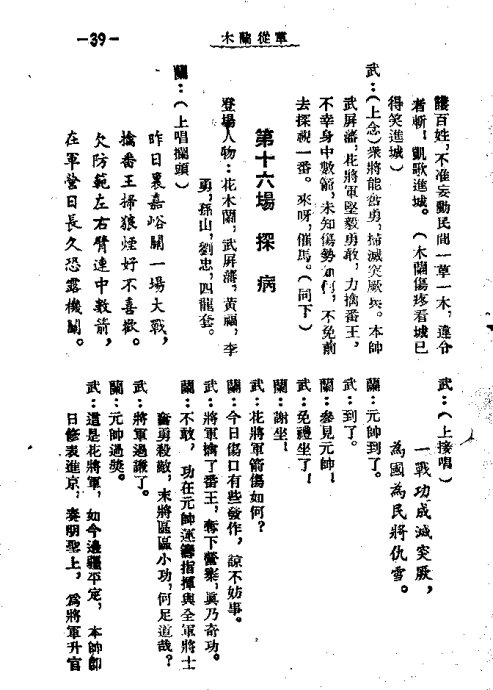 木蘭從軍
-39-
護百姓,不准妄動民間一草一木,違令
者斬!凱歌進城。(木蘭傷疼看城已
得笑進城)
武:(上念)衆將能奮勇,掃滅突厥兵。本帥
武屏藩,花將軍堅毅勇敢,力擒番王,
不幸身中數箭,未知傷勢如何,不免前
去探視一番。來呀,催馬。(同下)
第十六場 探病
登場人物:花木蘭,武屏藩,黃福,李
勇,孫山,劉忠,四龍套。
蘭:(上唱攔頭)
昨日裏嘉峪關一場大戰,
擒番王掃狼煙好不喜歡。
欠防範左右臂連中數箭,
在軍營日長久恐露機關。
武:(上接唱)
一戰功成滅突厥,
為國為民將仇雪。
蘭:元帥到了。
武:到了。
蘭:參見元帥!
武:免禮坐了!
蘭:謝坐!
武:花將軍箭傷如何?
蘭:今日傷口有些發作,諒不妨事。
武:將軍擒了番王,奪下營寨,眞乃奇功。
蘭:不敢,功在元帥運籌指揮與全軍將士
奮勇殺敵,末將區區小功,何足道哉?
武:將軍過謙了。
蘭:元帥過獎。
武:這是花將軍,如今邊疆平定,本帥卽
日修表進京,奏明聖上,爲將軍升官